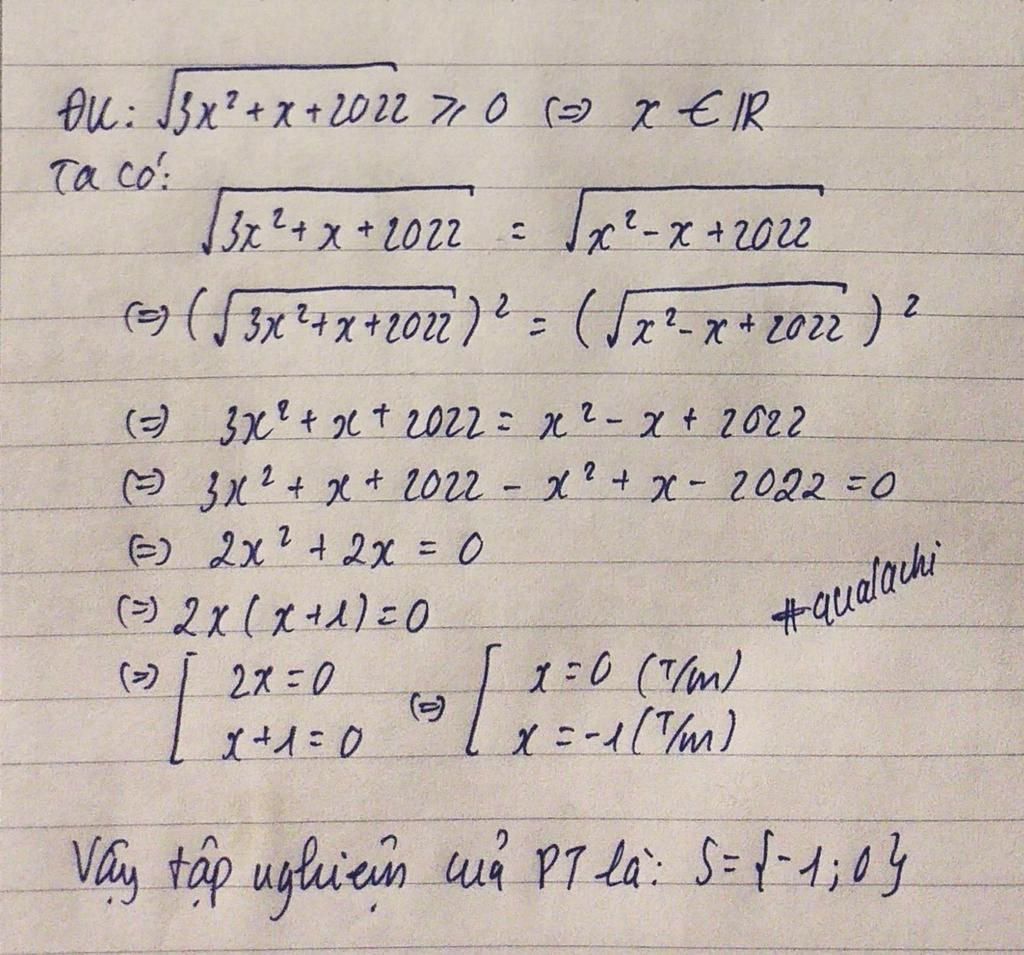 ĐK: √3x² + x + 2022 ⩾ 0 (=) x ∈ IR
Ta có:
√3x² + x + 2022 = √x² - x + 2022
(=) (√3x² + x + 2022)² = (√x² - x + 2022)²
(=) 3x² + x + 2022 = x² - x + 2022
(=) 3x² + x + 2022 - x² + x - 2022 = 0
(=) 2x² + 2x = 0
#qualachi
(=) 2x(x+1) = 0
(=) [ 2x = 0 (=) [ x = 0 (T/m)
x + 1 = 0 x = -1 (T/m)
Vậy tập nghiệm của PT là: S = {-1; 0}